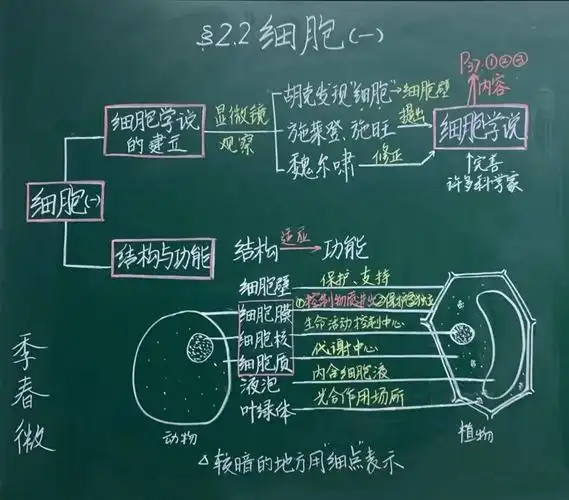 §2.2 细胞(一)
P37.①②③
内容
胡克发现"细胞"→细胞壁
细胞学说的建立
显微镜
观察
施莱登、施旺
提出
细胞学说
魏尔啸
修正
完善
许多科学家
细胞(一)
结构与功能
结构
适应
功能
细胞壁 保护、支持
细胞膜 ①控制物质进出②保护
细胞核 生命活动控制中心
细胞质 代谢中心
液泡 内含细胞液
叶绿体 光合作用场所
动物
植物
△较暗的地方用"细点"表示
季春微